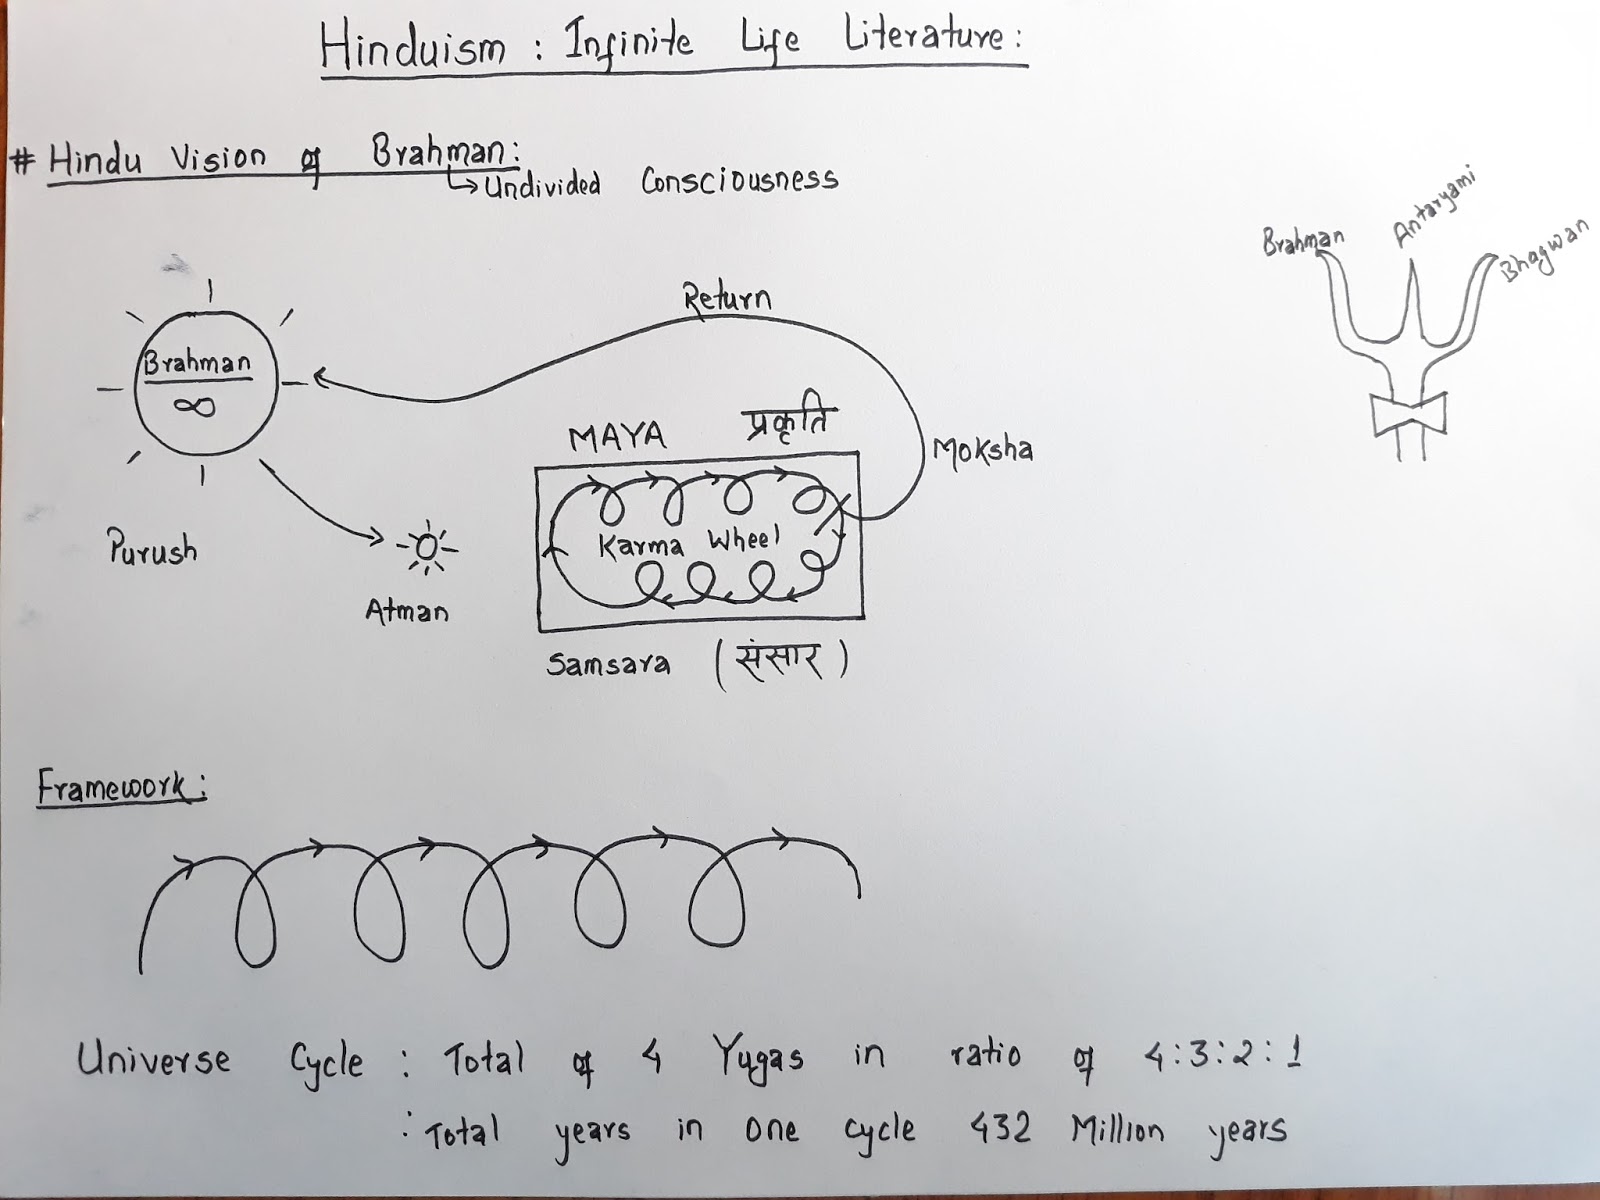 Hinduism : Infinite Life Literature :
# Hindu Vision of Brahman :
↳ Undivided Consciousness
Brahman
Antaryami
Bhagwan
Return
Brahman
∞
MAYA प्रकृति
Moksha
Karma Wheel
Purush
Atman
Samsara (संसार)
Framework :
Universe Cycle : Total of 4 Yugas in ratio of 4:3:2:1
: Total years in one cycle 432 Million years